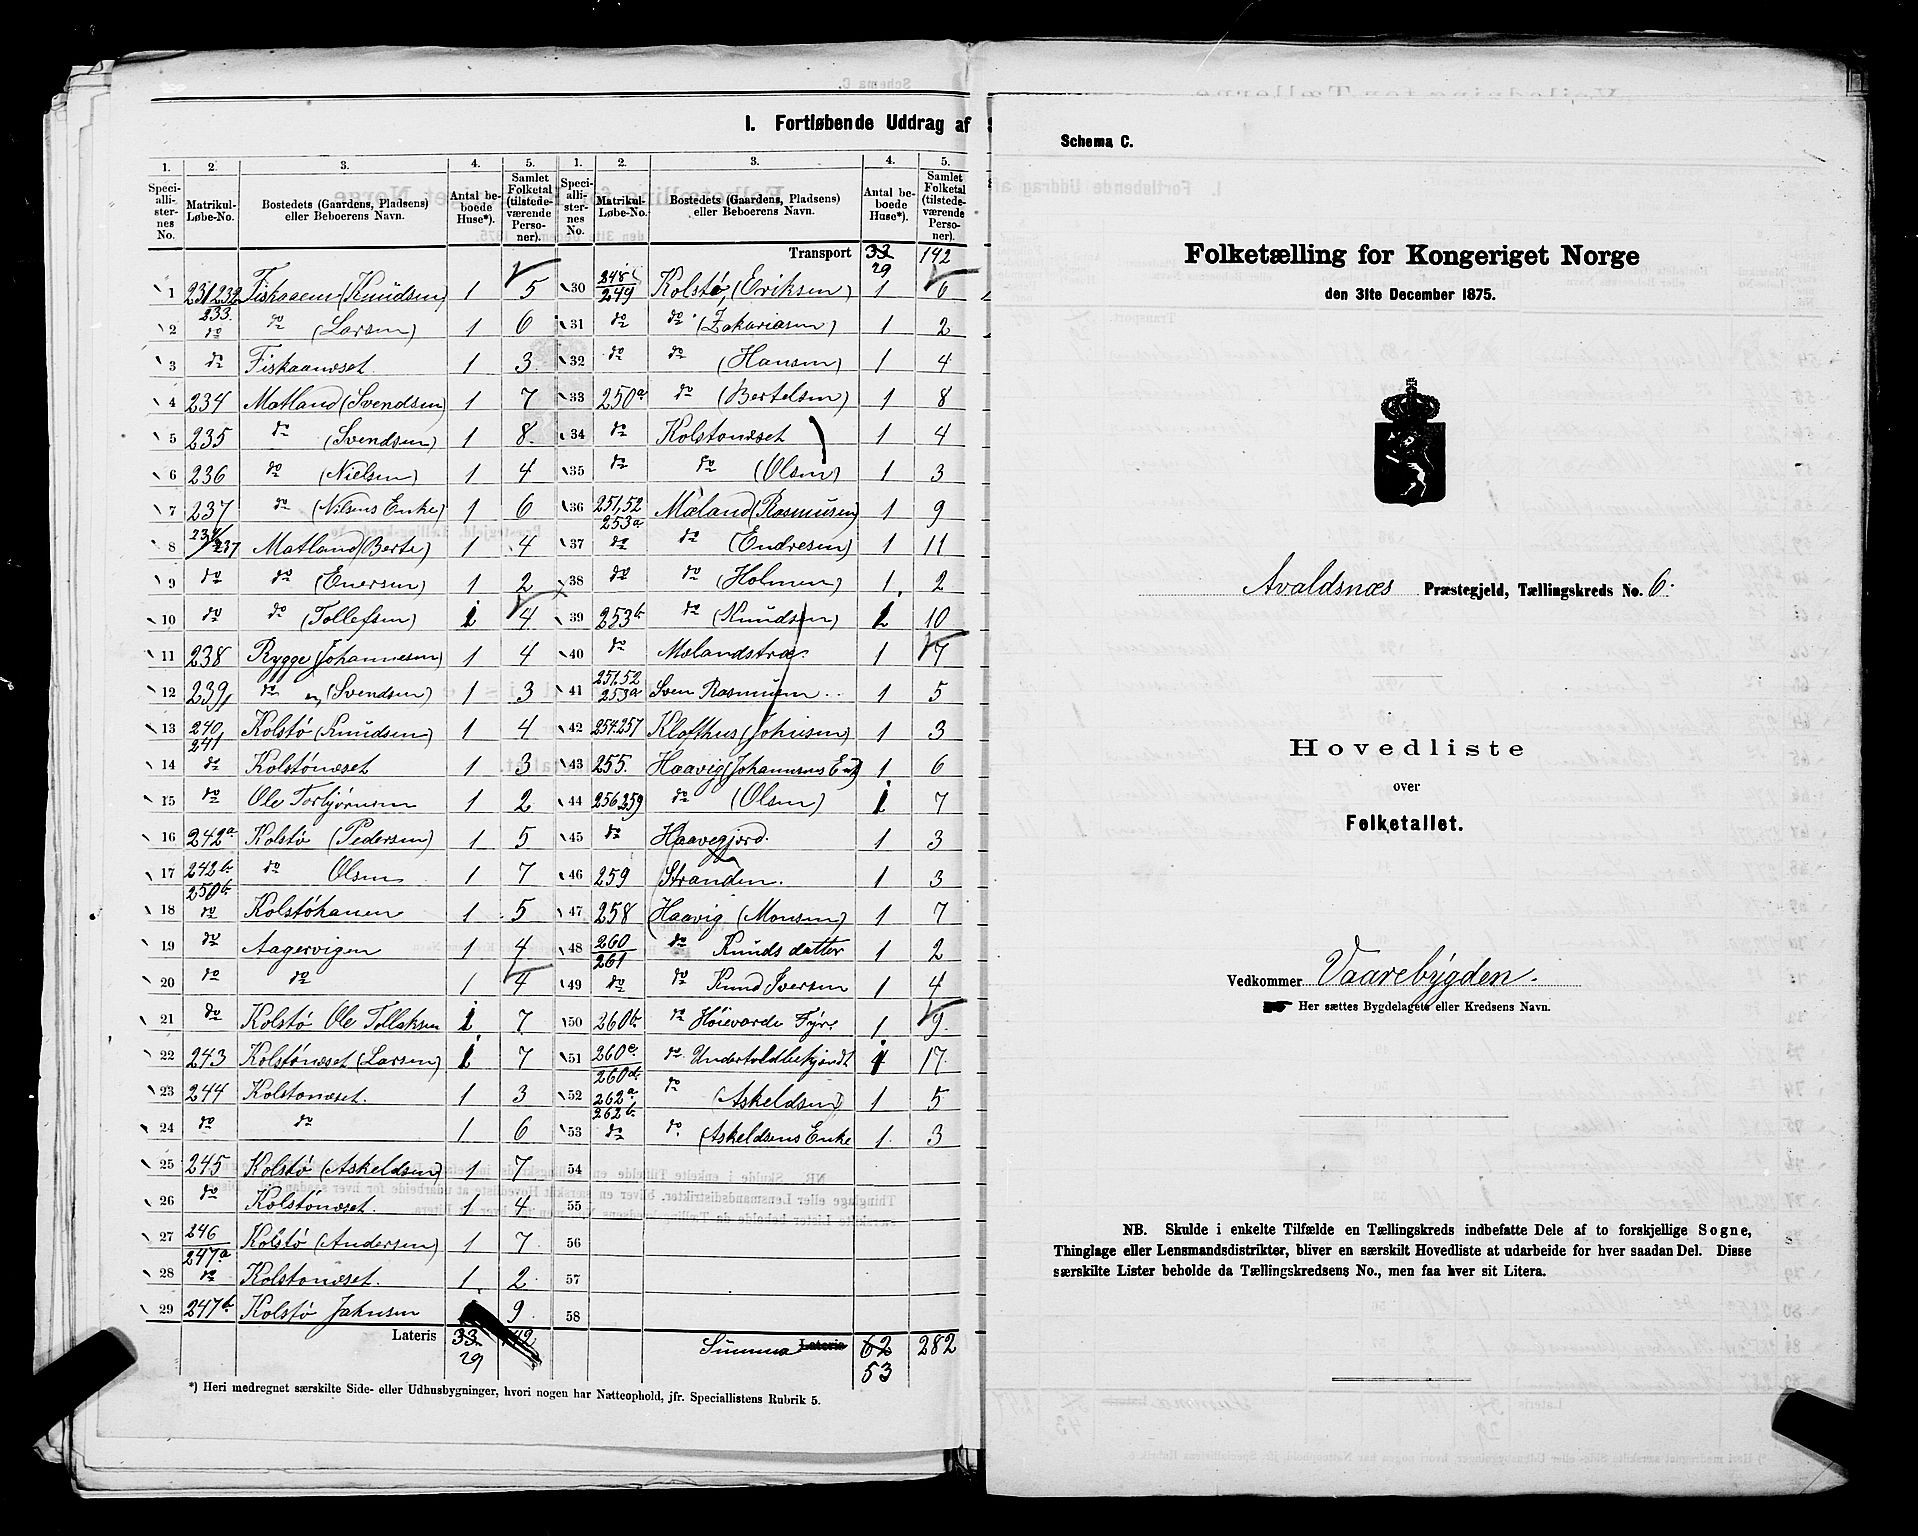 I. Fortløbende Uddrag af
1. 2. 3. 4. 5. 1. 2. 3. 4. 5.
Speciallisternes No. Matrikul-Løbe-No. Bostedets (Gaardens, Pladsens) eller Beboerens Navn. Antal beboede Huse*). Samlet Folketal (tilstedeværende Personer). Speciallisternes No. Matrikul-Løbe-No. Bostedets (Gaardens, Pladsens) eller Beboerens Navn. Antal beboede Huse*). Samlet Folketal (tilstedeværende Personer).
Transport 33 29 142
1 231 232 233. Fiskaaen (Knudsen) 1 5
2 do do (Larsen) 1 6
3 do Fiskaanæset 1 3
4 234 Matland (Svendsen) 1 7
5 235 do (Svendsen) 1 8
6 236 do (Nielsen) 1 4
7 237 do (Nilsens Enke) 1 6
8 237 Matland (Berte) 1 4
9 do do (Enersen) 1 2
10 do do (Tollefsen) 1 4
11 238 Rygge (Johannesen) 1 4
12 239 do (Svendsen) 1 3
13 240 241 Kolstø (Knudsen) 1 4
14 do Kolstønæset 1 3
15 do Ole Torbjørnsen 1 2
16 242a Kolstø (Pedersen) 1 5
17 242b 250b do Olsen 1 7
18 do Kolstøhauen 1 5
19 do Aagervigen 1 4
20 do do 1 4
21 do Kolstø Ole Tollaksen 1 7
22 243 Kolstønæset (Larsen) 1 7
23 244 Kolstonæset. 1 3
24 do do 1 6
25 245 Kolstø (Askeldsen) 1 7
26 do Kolstønæset. 1 4
27 246 247a Kolstø (Andersen) 1 7
28 do Kolstonæset. 1 2
29 247b Kolstø Jahnsen 9
Lateris 33 29 142
30 248 249 Kolstø, (Eriksen) 1 6
31 do do (Zakariasen) 1 2
32 do do (Hansen) 1 4
33 250a do (Bertelsen) 1 8
34 do Kolstonæset 1 4
35 do do (Olsen) 1 3
36 251,52 253a Mæland (Rasmusen) 1 9
37 do do (Endresen) 1 11
38 do do (Holmen) 1 2
39 253b do (Knudsen) 1 10
40 do Mælandstræ. 1 7
41 251,52 253a Sven Rasmusen 1 5
42 254.257 Klofthus (Johnsen) 1 3
43 255. Haavig (Johannesens Enk) 1 6
44 256 259 do (Olsen) 1 7
45 do Haavegjord. 1 3
46 259 Stranden. 1 3
47 258 Haavig (Monsen) 1 7
48 260 261 do Knudsdatter 1 2
49 do do Knud Iversen 1 4
50 260b do Høievarde Fyr. 1 9
51 260c 260d do Undertoldbetjendt 1 17
52 262a 262b do (Askeldsen) 1 5
53 do do (Askeldsens Enke 1 3
54
55
56
57
58
Summa Lateris 62 53 282
*) Heri medregnet særskilte Side- eller Udhusbygninger, hvori nogen har Natteophold, jfr. Speciallistens Rubrik 5.
Schema C.
Folketælling for Kongeriget Norge
den 31te December 1875.
Avaldsnæs Præstegjeld, Tællingskreds No. 6.
Hovedliste
over
Folketallet.
Vedkommer Vaarebygden.
Her sættes Bygdelagets eller Kredsens Navn.
NB. Skulde i enkelte Tilfælde en Tællingskreds indbefatte Dele af to forskjellige Sogne,
Thinglage eller Lensmandsdistrikter, bliver en særskilt Hovedliste at udarbeide for hver saadan Del. Disse
særskilte Lister beholde da Tællingskredsens No., men faa hver sit Litera.